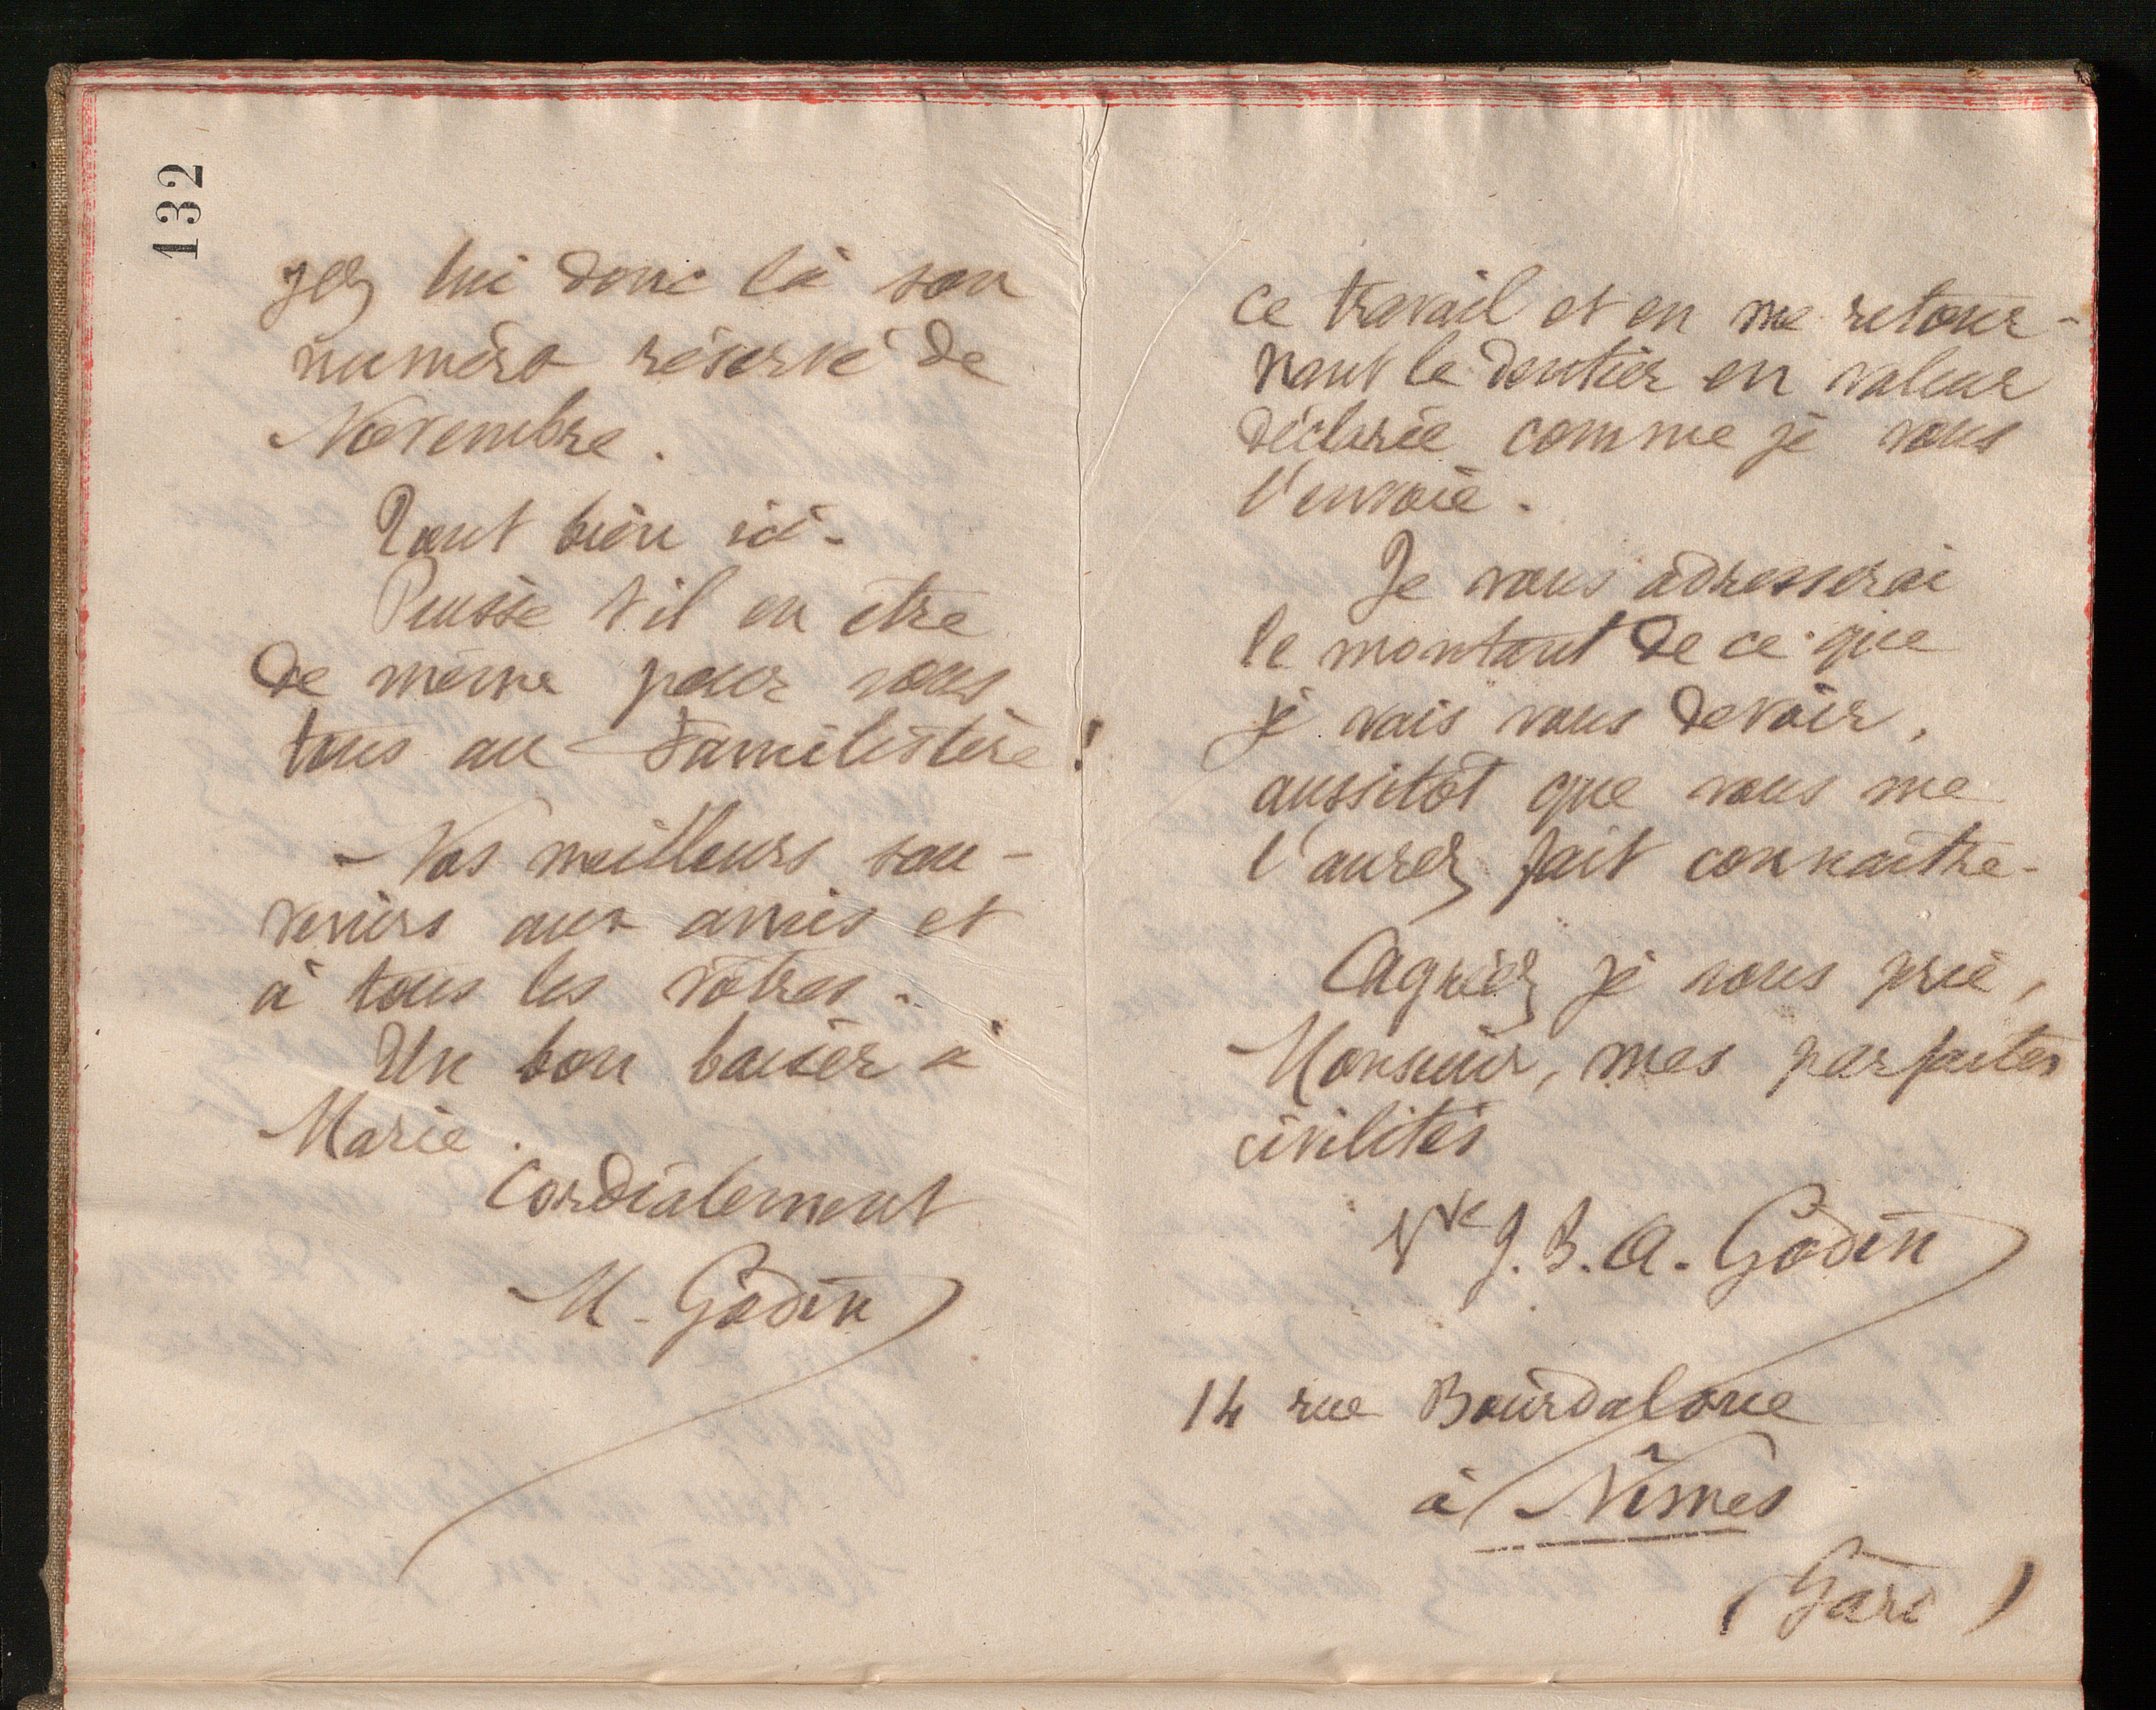 132
yez lui donc là son
numéro réservé de
Novembre.
Tout bien ici.
Puisse t'il en être
de même pour vous
tous au Familistère!
Nos meilleurs sou-
venirs aux amis et
à tous les vôtres.
Un bon baiser à
Marie.
Cordialement
M. Godin
ce travail et en me retour-
nant le dentier en valeur
déclarée comme je vous
l'envoie.
Je vous adresserai
le montant de ce que
je vais vous devoir,
aussitôt que vous me
l'aurez fait connaître.
Agréez je vous prie,
Monsieur, mes parfaites
civilités
Vve J. B. A. Godin
14 rue Bourdaloue
à Nîmes
(Gard)